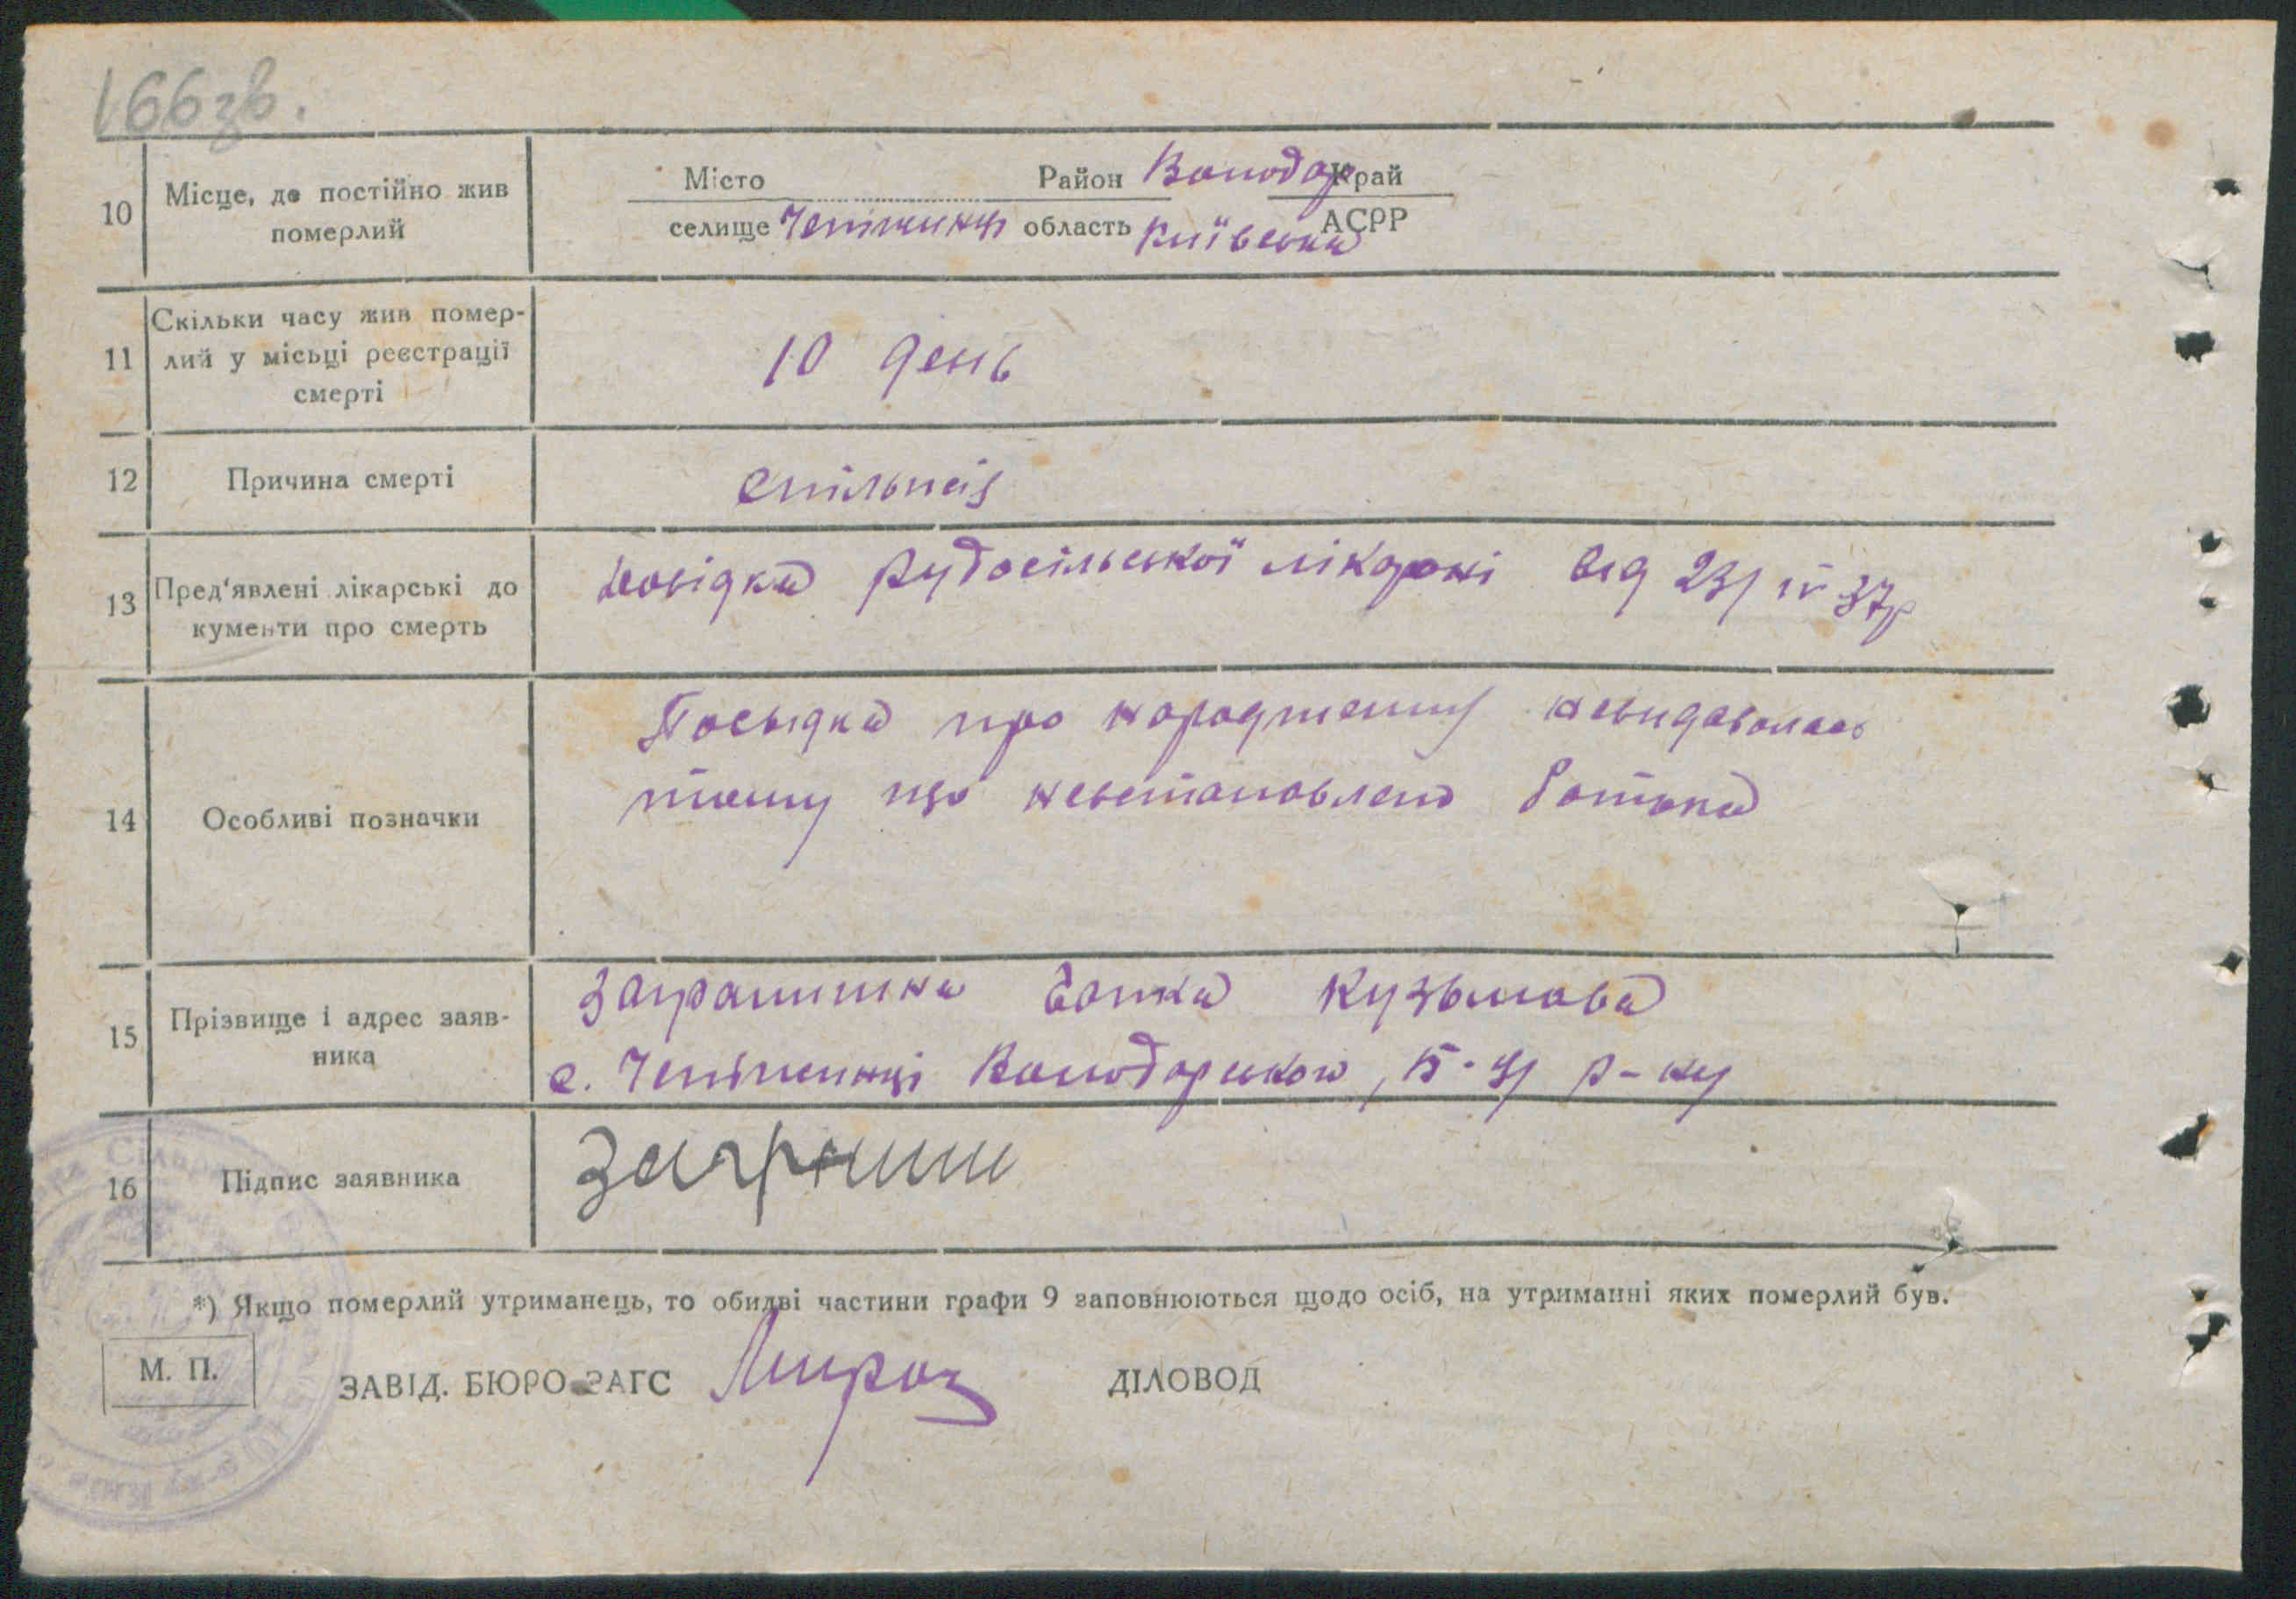 166 зв.
10 Місце, де постійно жив померлий
Місто Район Володар Край
селище Чепіжинці область Київська АСРР
11 Скільки часу жив помер-
лий у місьці реєстрації
смерті
10 день
12 Причина смерті
епільпсія
13 Пред'явлені лікарські до
кументи про смерть
Довідка Рудосільської лікарні від 23/IV 37р
14 Особливі позначки
Посвідка про народження невидавалась
тому що невстановлено батька
15 Прізвище і адрес заяв-
ника
Кузьмова
с. Чепіжинці Володарського, р-ну
16 Підпис заявника
*) Якщо померлий утриманець, то обидві частини графи 9 заповнюються щодо осіб, на утриманні яких померлий був.
М. П.
ЗАВІД. БЮРО ЗАГС Мироз ДІЛОВОД